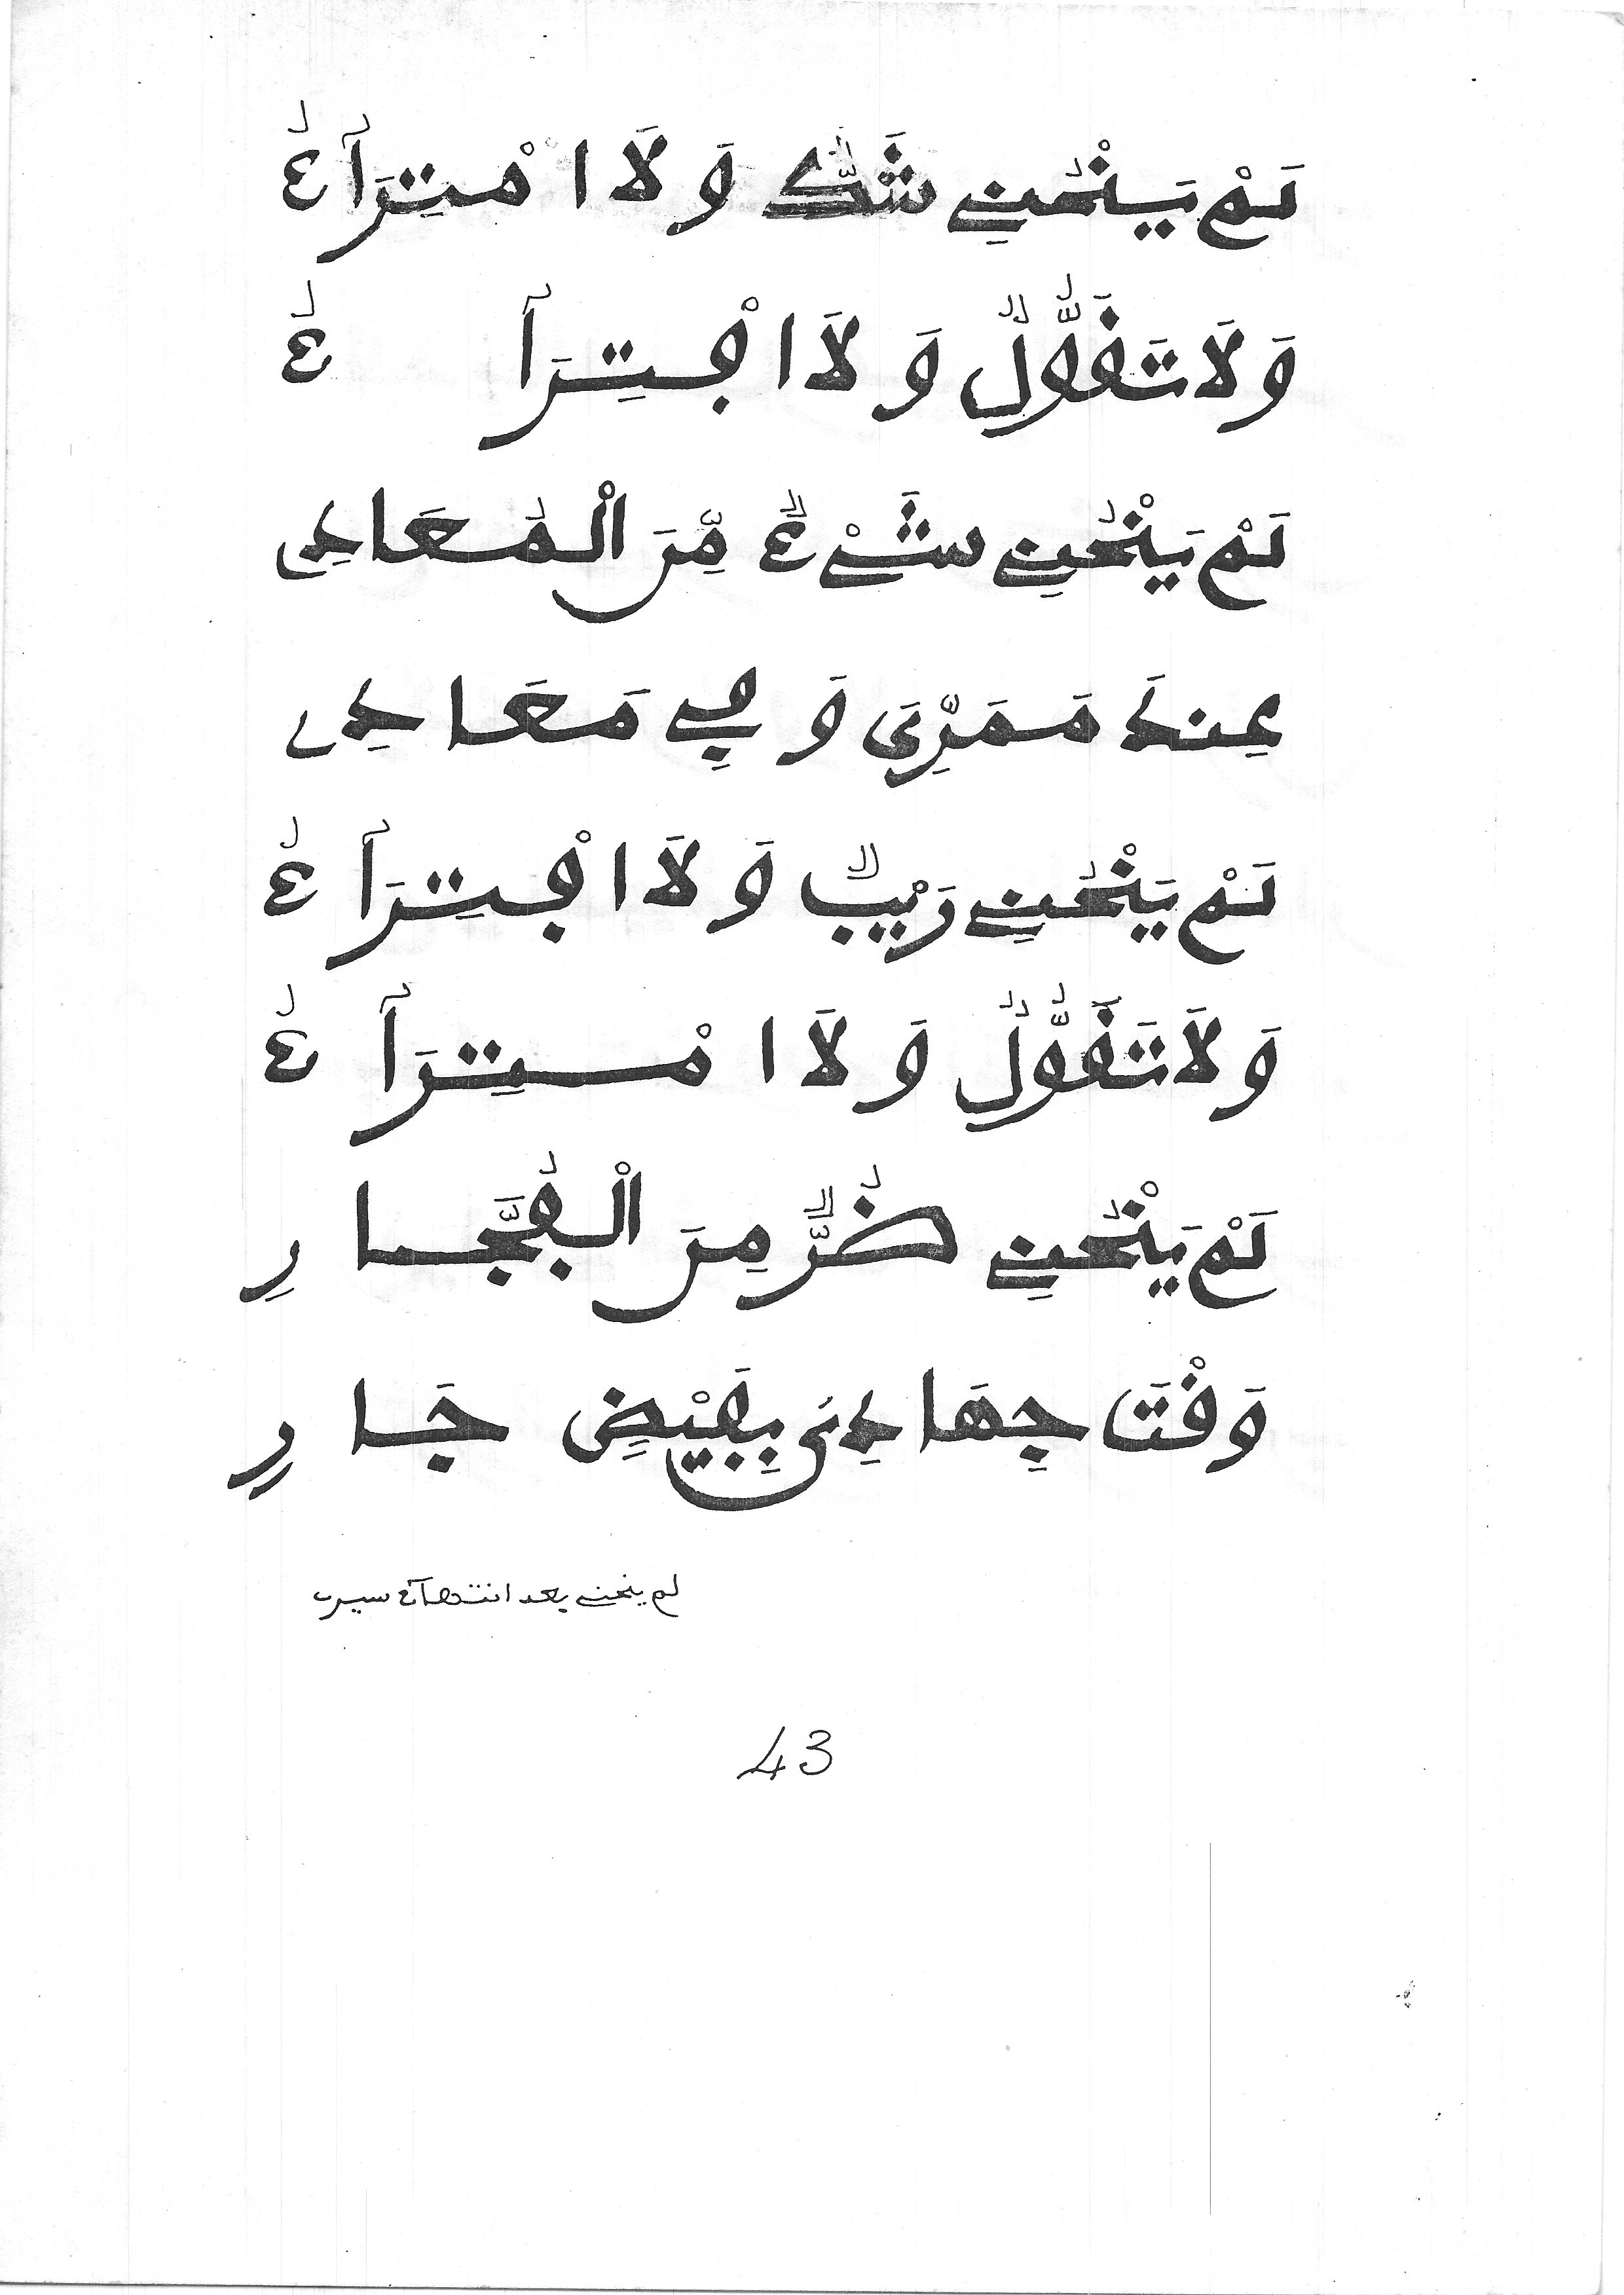 لَمْ يَنْحُنِي شَكٌّ وَلَا امْتِرَآءُ
وَلَا تَقَوُّلٌ وَلَا افْتِرَآءُ
لَمْ يَنْحُنِي شَيْءٌ مِّنَ الْمُعَادِي
عِندَ مَمَرِّي وَفِي مَعَادِي
لَمْ يَنْحُنِي رَيْبٌ وَلَا افْتِرَآءُ
وَلَا تَقَوُّلٌ وَلَا امْتِرَآءُ
لَمْ يَنْحُنِي ضُرٌّ مِنَ الْفُجَّارِ
وَقْتَ جِهَادِي بِفَيْضٍ جَارٍ
لم ينحني بعد انتهآء سيري
43